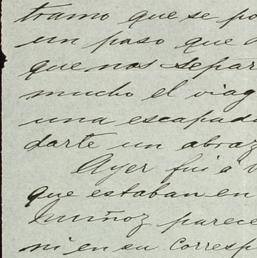 tramo que se po
un paso que a
que nos separ
mucho el viag
una escapada
darte un abraz
Ayer fui a v
que estaban en
Muñoz parece
ni en su corresp